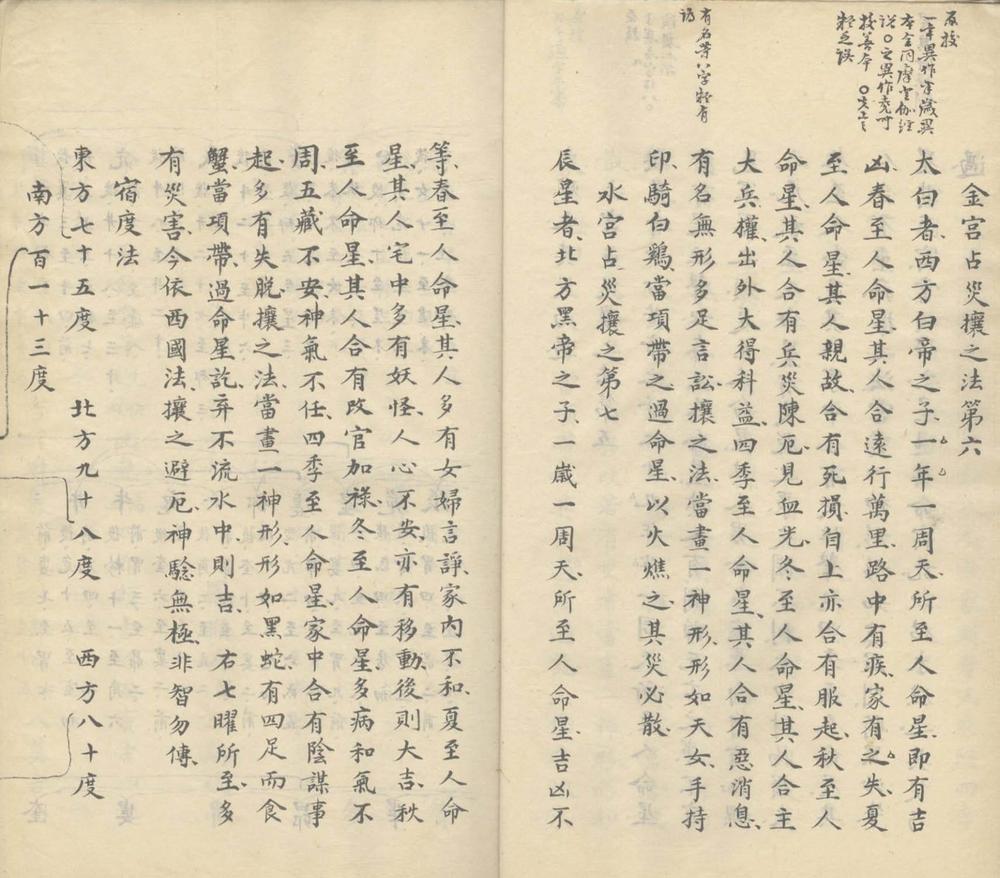 友校
一本異作字歲異
有名等八字雜有
金宮占災攘之法第六
太白者、西方白帝之子、一年一周天、所至人命星、即有吉
凶、春至人命星、其人合遠行萬里、路中有疾、家有之失、夏
至人命星、其人親故、合有死損、自上亦合有服起、秋至人
命星、其人合有兵災陳厄、見血光、冬至人命星、其人合主
大兵權、出外大得科益、四季至人命星、其人合有惡消息、
有名無形多足言訟、攘之法、當畫一神形、形如天女、手持
印、騎白鷄、當項帶之、過命星、以火燋之、其災必散、
水宮占災攘之第七
辰星者、北方黑帝之子、一歲一周天、所至人命星、吉凶不
等、春至人命星、其人多有女婦言諍、家內不和、夏至人命
星、其人宅中多有妖怪、人心不安、亦有移動、後則大吉、秋
至人命星、其人合有改官加祿、冬至人命星、多病和氣不
周、五藏不安、神氣不任、四季至人命星、家中合有陰謀事
起、多有失脫、攘之法、當畫一神形、形如黑蛇、有四足而食
蟹、當項帶、過命星訖、弃不流水中、則吉、右七曜所至、多
有災害、今依西國法、攘之避厄、神驗無極、非智勿傳、
宿度法
東方七十五度 北方九十八度 西方八十度
南方百一十三度